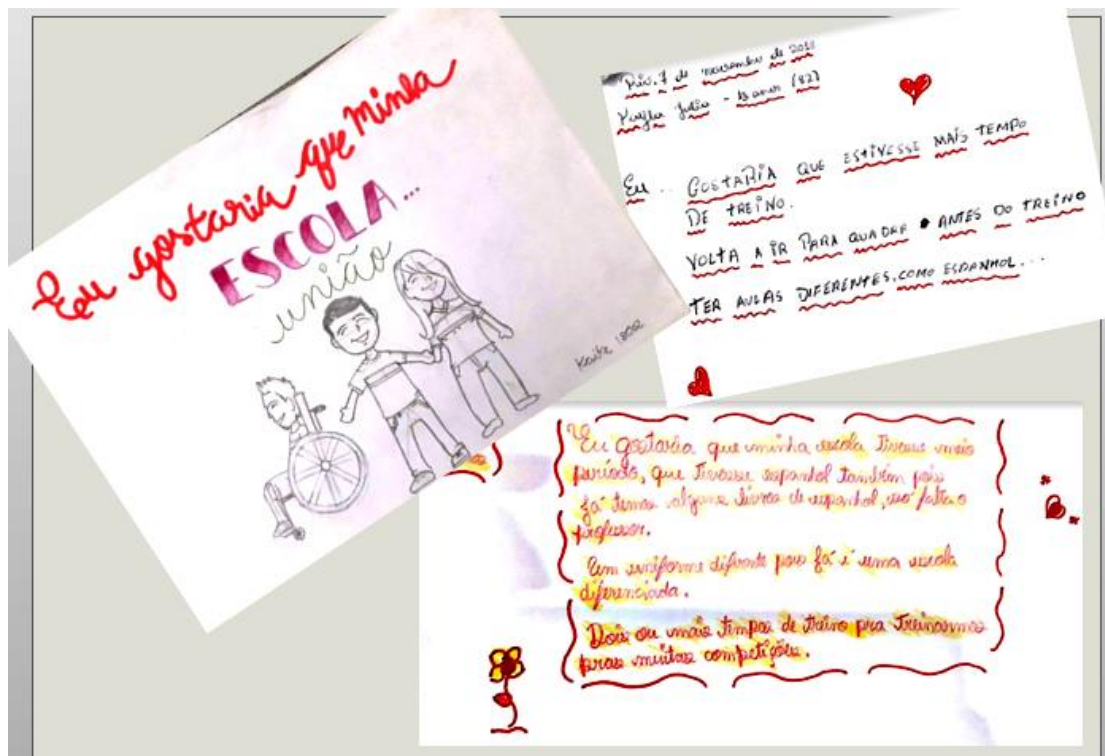 Eu gostaria que minha
ESCOLA...
união
Rio, 7 de novembro de
anos (82)
Eu .. GOSTARIA QUE ESTIVESSE MAIS TEMPO
DE TREINO.
VOLTA A IR PARA QUADRA ANTES DO TREINO
TER AULAS DIFERENTES, COMO ESPANHOL...
Eu gostaria que minha escola tivesse meio
período, que tivesse espanhol também pois
já temos alguns livros de espanhol, só falta o
professor.
Um uniforme difrente pois já é uma escola
diferenciada.
Dois ou mais tempos de treino pra treinarmos
pras muitas competições.